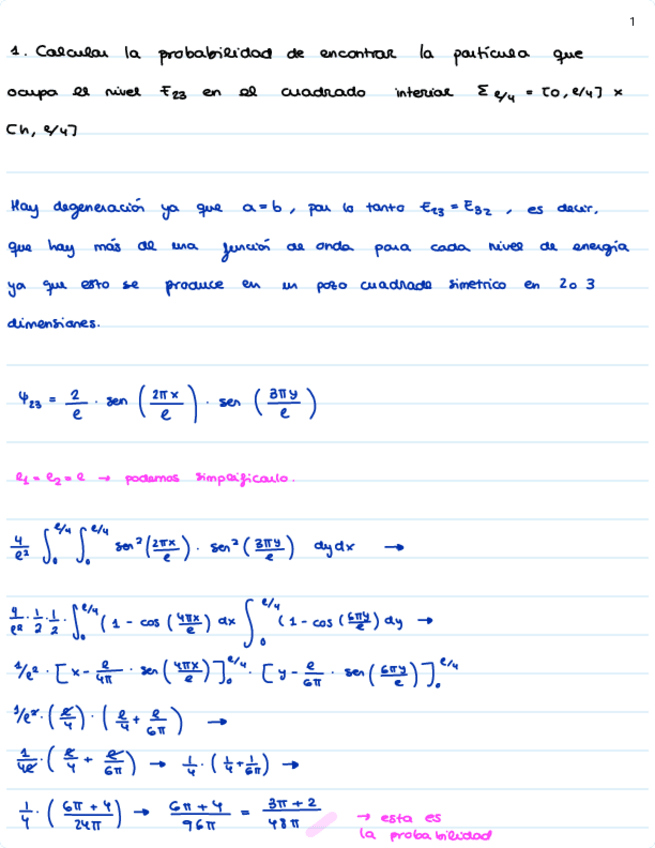 1
1. Calcular la probabilidad de encontrar la partícula que
ocupa el nivel E₂₃ en el cuadrado interior Σ ℓ/4 = [0, ℓ/4] ×
[h, ℓ/4]
Hay degeneración ya que a=b, por lo tanto E₂₃ = E₃₂, es decir,
que hay más de una función de onda para cada nivel de energía
ya que esto se produce en un pozo cuadrado simetrico en 2 o 3
dimensiones.
ψ₂₃ = 2/ℓ · sen (2πx/ℓ) · sen (3πy/ℓ)
ℓ₁ = ℓ₂ = ℓ → podemos simplificarlo.
4/ℓ² ∫₀^ℓ/4 ∫₀^ℓ/4 sen² (2πx/ℓ) · sen² (3πy/ℓ) dydx →
4/ℓ² · 1/2 · 1/2 · ∫₀^ℓ/4 (1 - cos (4πx/ℓ) dx ∫₀^ℓ/4 (1 - cos (6πy/ℓ) dy →
1/ℓ² · [x - ℓ/4π · sen (4πx/ℓ)]₀^ℓ/4 · [y - ℓ/6π · sen (6πy/ℓ)]₀^ℓ/4
1/ℓ² · (ℓ/4) · (ℓ/4 + ℓ/6π) →
1/4ℓ · (ℓ/4 + ℓ/6π) → 1/4 · (1/4 + 1/6π) →
1/4 · (6π + 4 / 24π) → 6π + 4 / 96π = 3π + 2 / 48π → esta es
la probabilidad